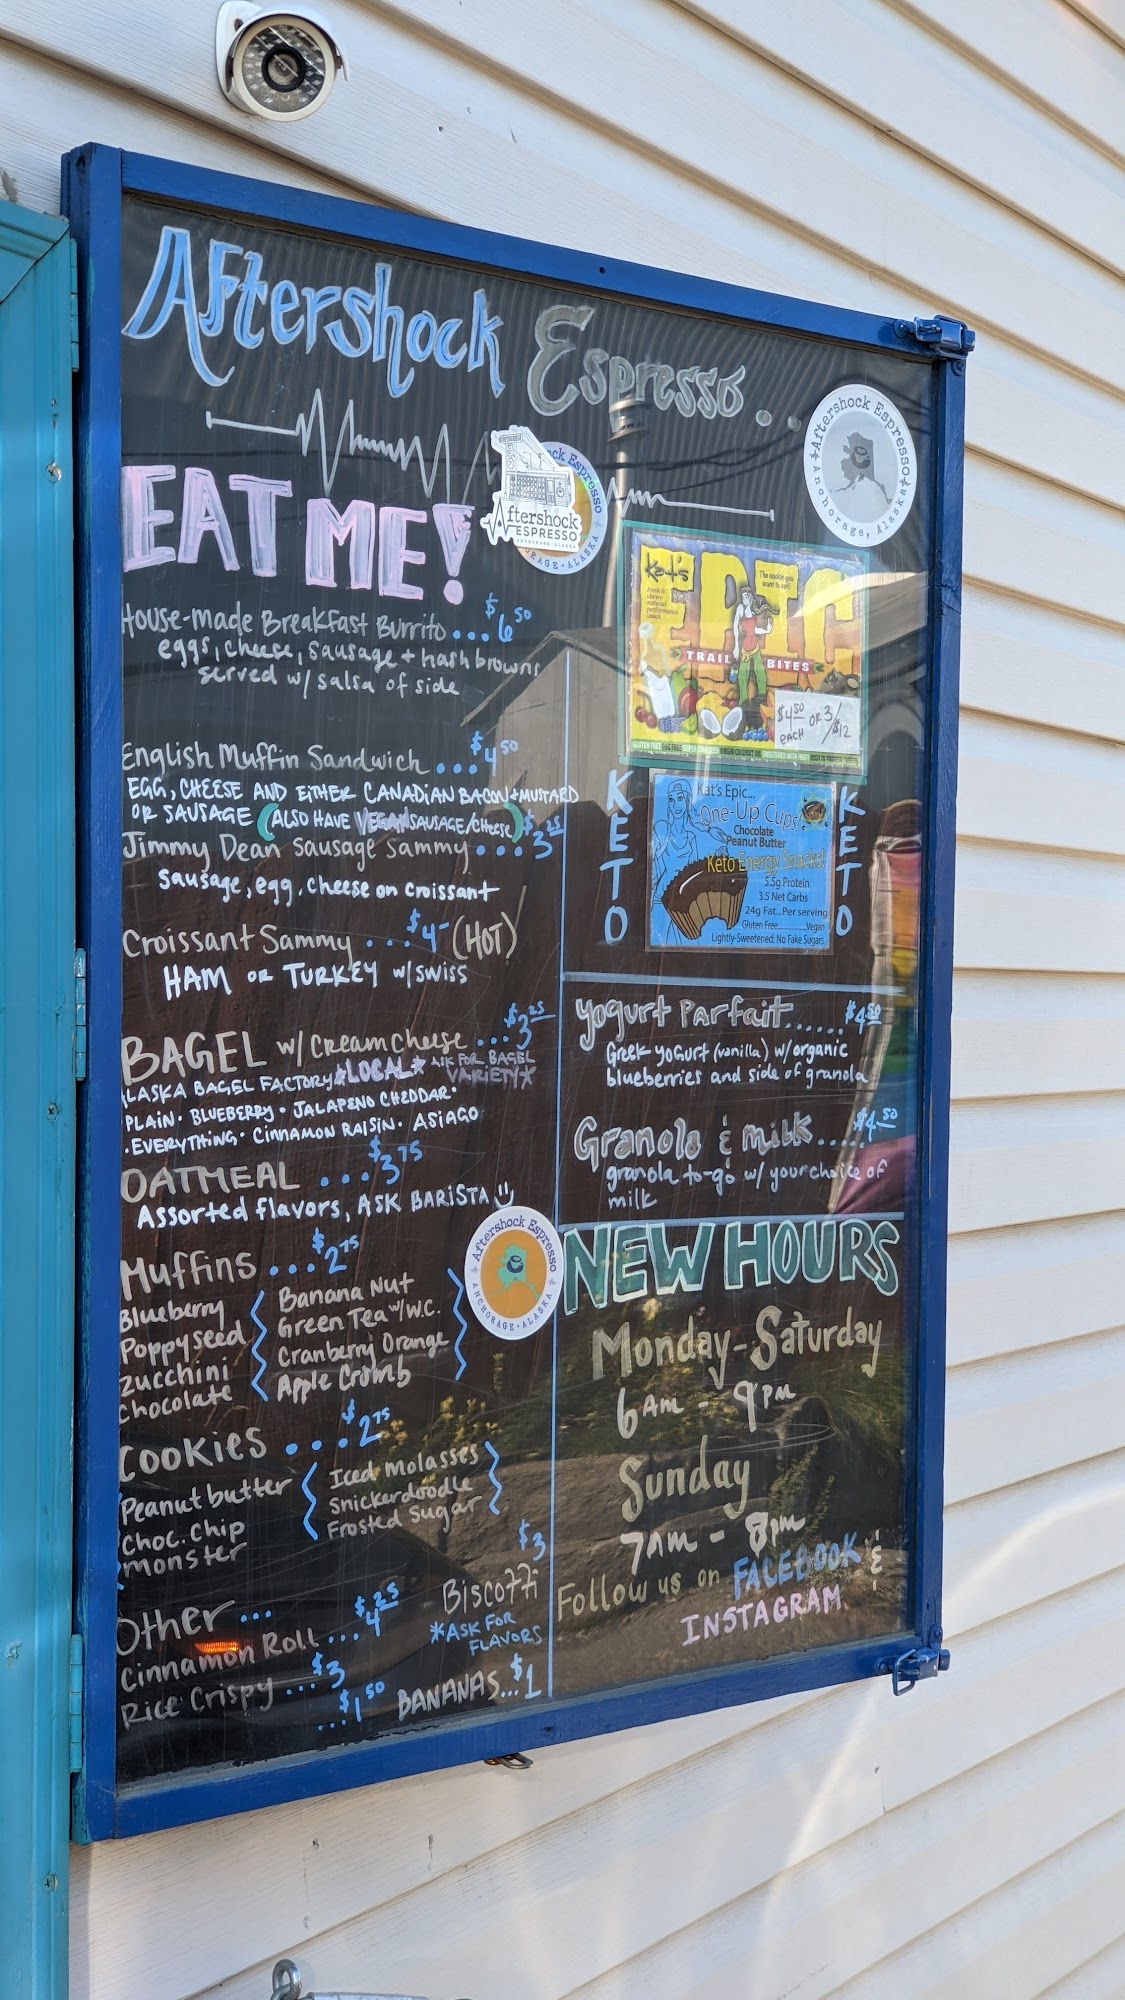 Aftershock Espresso...
EAT ME!
House-made Breakfast Burrito ... $6.50
eggs, cheese, sausage + hashbrowns
served w/ salsa of side
English Muffin Sandwich ... $4.50
EGG, CHEESE AND EITHER CANADIAN BACON + MUSTARD
OR SAUSAGE (ALSO HAVE VEGAN SAUSAGE/CHEESE)
Jimmy Dean Sausage Sammy ... $3.25
sausage, egg, cheese on croissant
Croissant Sammy ... $4- (HOT)
HAM OR TURKEY w/ SWISS
BAGEL w/ Cream Cheese ... $3.25
ALASKA BAGEL FACTORY *LOCAL* ASK FOR BAGEL
VARIETY*
PLAIN · BLUEBERRY · JALAPENO CHEDDAR ·
· EVERYTHING · CINNAMON RAISIN · ASIAGO
OATMEAL ... $3.75
Assorted flavors, ASK BARISTA
Muffins ... $2.75
Blueberry
Poppyseed
Zucchini
Chocolate
Banana Nut
Green Tea w/ W.C.
Cranberry Orange
Apple Crumb
Cookies ... $2.75
Peanut butter
Choc. Chip
monster
Iced Molasses
Snickerdoodle
Frosted Sugar
Other ... $4.25
Cinnamon Roll ... $3
Rice Crispy ... $1.50
$3
Biscotti
*ASK FOR
FLAVORS
BANANAS... $1
Aftershock
ESPRESSO
ANCHORAGE · ALASKA
Aftershock Espresso
Anchorage, Alaska
Kat's
EPIC
The cookie you
want to eat!
TRAIL BITES
$4.50
each
OR 3/$12
KETO
Kat's Epic...
One-Up Cups!
Chocolate
Peanut Butter
Keto Energy Snacks!
5.5g Protein
3.5 Net Carbs
24g Fat...Per serving
Gluten Free..........Vegan
Lightly-Sweetened: No Fake Sugars
KETO
Yogurt Parfait...... $4.50
Greek yogurt (vanilla) w/ organic
blueberries and side of granola
Granola & milk..... $4.50
granola to-go w/ your choice of
milk
Aftershock Espresso
ANCHORAGE · ALASKA
NEW HOURS
Monday-Saturday
6AM - 9PM
Sunday
7AM - 8pm
Follow us on FACEBOOK &
INSTAGRAM